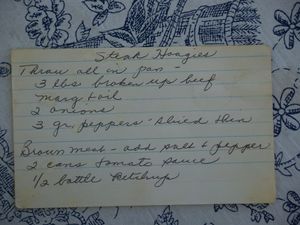 Steak Hoagies
Throw all in pan -
3 lbs broken up beef
marg + oil
2 onions
3 gr. peppers - sliced thin
Brown meat - add salt & pepper
2 cans tomato sauce
1/2 bottle ketchup